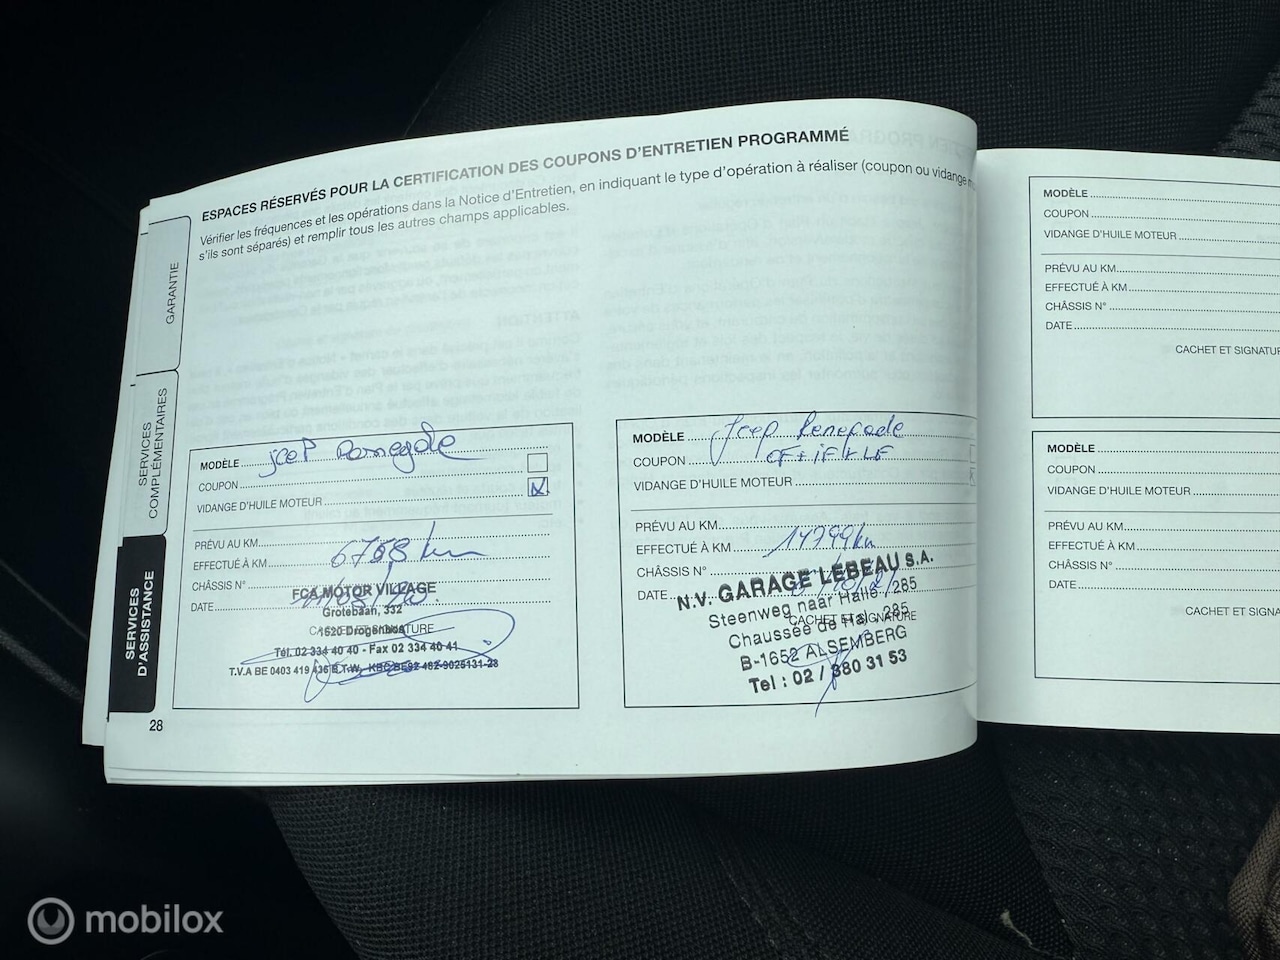 ESPACES RÉSERVÉS POUR LA CERTIFICATION DES COUPONS D'ENTRETIEN PROGRAMMÉ
Vérifier les fréquences et les opérations dans la Notice d'Entretien, en indiquant le type d'opération à réaliser (coupon ou vidange
s'ils sont séparés) et remplir tous les autres champs applicables.
GARANTIE
SERVICES
COMPLÉMENTAIRES
SERVICES
D'ASSISTANCE
MODÈLE
COUPON
VIDANGE D'HUILE MOTEUR
PRÉVU AU KM
EFFECTUÉ À KM 6768 km
CHÂSSIS N°
DATE
FCA MOTOR VILLAGE
Grotebaan, 332
1620 Drogenbos
CACHET ET SIGNATURE
Tél. 02 334 40 40 - Fax 02 334 40 41
28
MODÈLE Jeep Renegade
COUPON
VIDANGE D'HUILE MOTEUR
PRÉVU AU KM
EFFECTUÉ À KM 14799 km
CHÂSSIS N°
DATE
N.V. GARAGE LEBEAU S.A.
Steenweg naar Halle, 285
CACHET ET SIGNATURE
Chaussée de Hal, 285
B-1652 ALSEMBERG
Tel : 02 / 380 31 53
MODÈLE
COUPON
VIDANGE D'HUILE MOTEUR
PRÉVU AU KM
EFFECTUÉ À KM
CHÂSSIS N°
DATE
CACHET ET SIGNATU
MODÈLE
COUPON
VIDANGE D'HUILE MOTEUR
PRÉVU AU KM
EFFECTUÉ À KM
CHÂSSIS N°
DATE
CACHET ET SIGNA
mobilox